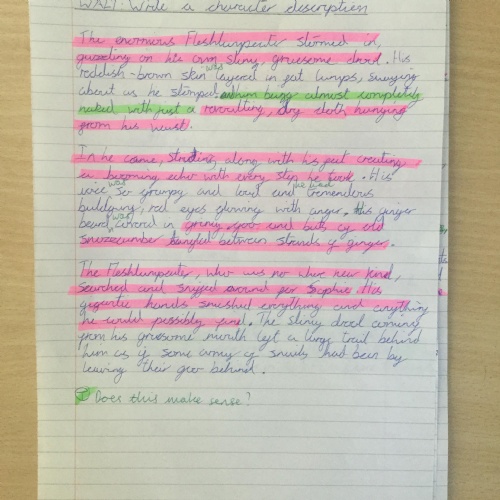 WALT: Write a character description
The enormous Fleshlumpeater stormed in,
on his own slimy, gruesome drool. His
reddish-brown skin was layered in fat lumps, swaying
about as he stomped. him being almost completely
naked, with just a revoulting, dry cloth, hanging
from his waist.
In he came, striding, along with his feet creating
a booming echo with every step he took. His
voice was so grumpy and loud and he had tremendous
buldging, red eyes glowing with anger. His ginger
beard was covered in grimy, goo and bits of old
snozzcumber tangled between strands of ginger.
The Fleshlumpeater, who was no where near kind,
searched and sniffed around for Sophie. His
gigantic hands smushed everything and anything
he could possibly find. The slimy drool coming
from his gruesome mouth left a large trail behind
him as if some army of snails had been by
leaving their goo behind.
Does this make sense?